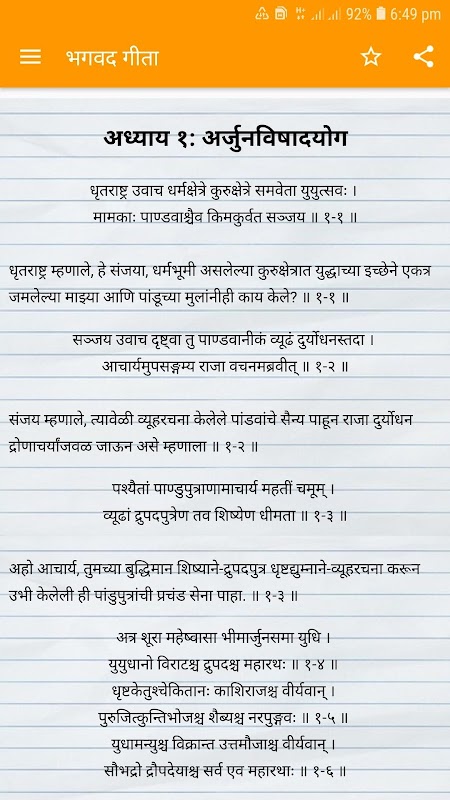 92% 6:49 pm
भगवद गीता
अध्याय १: अर्जुनविषादयोग
धृतराष्ट्र उवाच धर्मक्षेत्रे कुरुक्षेत्रे समवेता युयुत्सवः ।
मामकाः पाण्डवाश्चैव किमकुर्वत सञ्जय ॥ १-१ ॥
धृतराष्ट्र म्हणाले, हे संजया, धर्मभूमी असलेल्या कुरुक्षेत्रात युद्धाच्या इच्छेने एकत्र
जमलेल्या माझ्या आणि पांडूच्या मुलांनीही काय केले? ॥ १-१ ॥
सञ्जय उवाच दृष्ट्वा तु पाण्डवानीकं व्यूढं दुर्योधनस्तदा ।
आचार्यमुपसङ्गम्य राजा वचनमब्रवीत् ॥ १-२ ॥
संजय म्हणाले, त्यावेळी व्यूहरचना केलेले पांडवांचे सैन्य पाहून राजा दुर्योधन
द्रोणाचर्यांजवळ जाऊन असे म्हणाला ॥ १-२ ॥
पश्यैतां पाण्डुपुत्राणामाचार्य महतीं चमूम् ।
व्यूढां द्रुपदपुत्रेण तव शिष्येण धीमता ॥ १-३ ॥
अहो आचार्य, तुमच्या बुद्धिमान शिष्याने-द्रुपदपुत्र धृष्टद्युम्नाने-व्यूहरचना करून
उभी केलेली ही पांडुपुत्रांची प्रचंड सेना पाहा. ॥ १-३ ॥
अत्र शूरा महेष्वासा भीमार्जुनसमा युधि ।
युयुधानो विराटश्च द्रुपदश्च महारथः ॥ १-४ ॥
धृष्टकेतुश्चेकितानः काशिराजश्च वीर्यवान् ।
पुरुजित्कुन्तिभोजश्च शैब्यश्च नरपुङ्गवः ॥ १-५ ॥
युधामन्युश्च विक्रान्त उत्तमौजाश्च वीर्यवान् ।
सौभद्रो द्रौपदेयाश्च सर्व एव महारथाः ॥ १-६ ॥